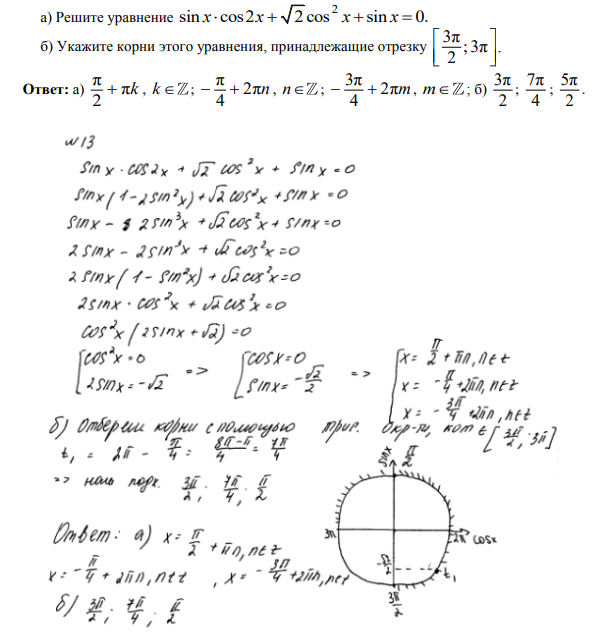 а) Решите уравнение sin x · cos 2x + √2 cos² x + sin x = 0.
б) Укажите корни этого уравнения, принадлежащие отрезку [3π/2; 3π].
Ответ: а) π/2 + πk, k ∈ ℤ; −π/4 + 2πn, n ∈ ℤ; −3π/4 + 2πm, m ∈ ℤ; б) 3π/2; 7π/4; 5π/2.
N 13
sin x · cos 2x + √2 cos² x + sin x = 0
sin x (1 − 2 sin² x) + √2 cos² x + sin x = 0
sin x − 2 sin³ x + √2 cos² x + sin x = 0
2 sin x − 2 sin³ x + √2 cos² x = 0
2 sin x (1 − sin² x) + √2 cos² x = 0
2 sin x · cos² x + √2 cos² x = 0
cos² x (2 sin x + √2) = 0
[cos² x = 0 => [cos x = 0 => [x = π/2 + πn, n ∈ z
[2 sin x = −√2 [sin x = −√2/2 [x = −π/4 + 2πn, n ∈ z
[x = −3π/4 + 2πn, n ∈ z
б) Отберем корни с помощью триг. окр-ти, кот ∈ [3π/2; 3π]
t₁ = 2π − π/4 = (8π−π)/4 = 7π/4
=> нам подх. 3π/2; 7π/4; π/2
sin x
π/2
3π
2π
cos x
−√2/2
t₁
3π/2
Ответ: а) x = π/2 + πn, n ∈ z
x = −π/4 + 2πn, n ∈ z, x = −3π/4 + 2πn, n ∈ z
б) 3π/2; 7π/4; π/2